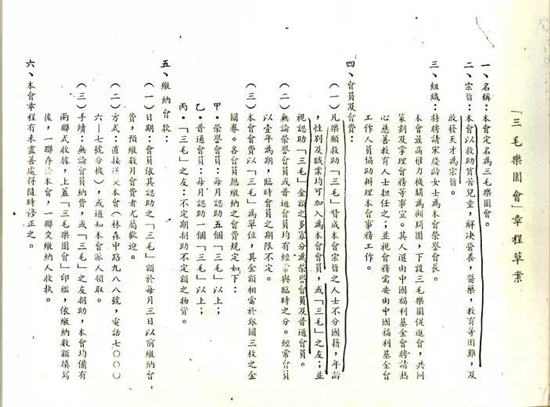 「三毛樂園會」章程草案
一、名稱：本會定名為三毛樂園會。
二、宗旨：本會以救助貧苦兒童，解決營養，醫藥，教育等困難，及
啟發天才為宗旨。
三、組織：特聘請宋慶齡女士為本會榮譽會長
本會最高權力機關為顧問團，下設三毛樂園促進會，共同
策劃及辦理會務等事宜。其人選由中國福利基金會聘請熱
心慈善教育人士担任之；並視會務需要由中國福利基金會
工作人員協助辦理本會事務工作。
四、會員及會費：
（一）凡樂願救助「三毛」贊成本會宗旨之人士不分國籍，年齡
，性別及職業均可加入為本會會員，或「三毛」之友；並
視認助「三毛」金額之多寡分為榮譽會員及普通會員。
（二）無論榮譽會員或普通會員均有經常與臨時之分。經常會員
以壹年為期，臨時會員之期限不定。
（三）本會會費以「三毛」為單位，其金額相當於銀圓三枚之金
圓券。各會員應繳納之會費規定如下：
甲・榮譽會員：每月認助五個「三毛」以上；
乙・普通會員：每月認助一個「三毛」以上；
丙・「三毛」之友：不定期捐助不定額之物資。
五、繳納會款：
（一）日期：會員依其認助之「三毛」額於每月三日以前繳納會
費，預繳數月會費者尤屬歡迎。
（二）方式：直接送交本會（林森中路九八八號，電話七〇〇
六一七號分機），或通知本會派人領取。
（三）手續：無論會員納費，或「三毛」之友捐助，本會均備有
兩聯式收據，上蓋「三毛樂園會」印鑑，依繳納數額填寫
後，一聯存於本會，一聯交繳納人收執。
六、本會章程有未盡善處得隨時修正之。